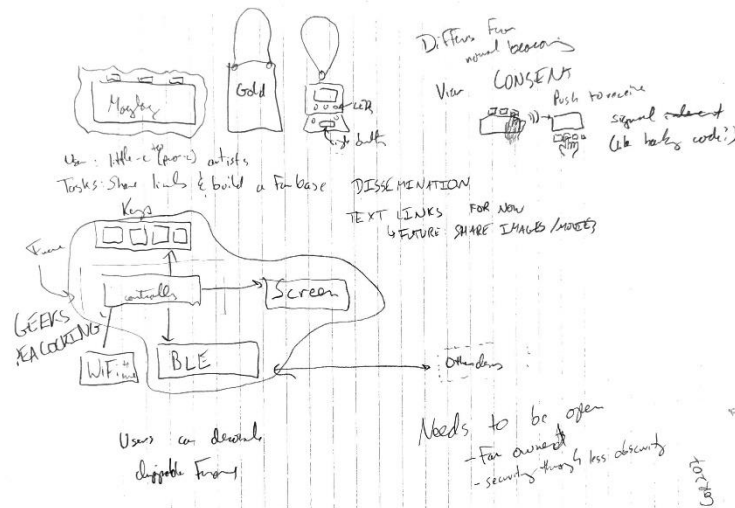 Differs from
normal beaconing
Via CONSENT
Push to receive
signal
(like
code?)
Gold
LEDs
User: little-c (pro-c) artists
Tasks: Share links & build a fan base
DISSEMINATION
TEXT LINKS FOR NOW
↳ FUTURE SHARE IMAGES/MOVIES
Keys
Frame
controller
Screen
GEEKS
PEACOCKING
WiFi
BLE
Other devs
Users can decorate
Needs to be open
- For owners
- security through less obscurity